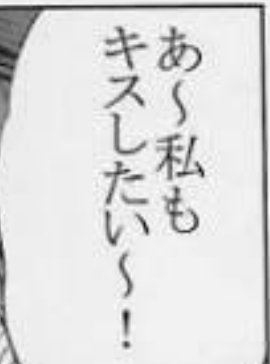 あ～私も
キスしたい～！